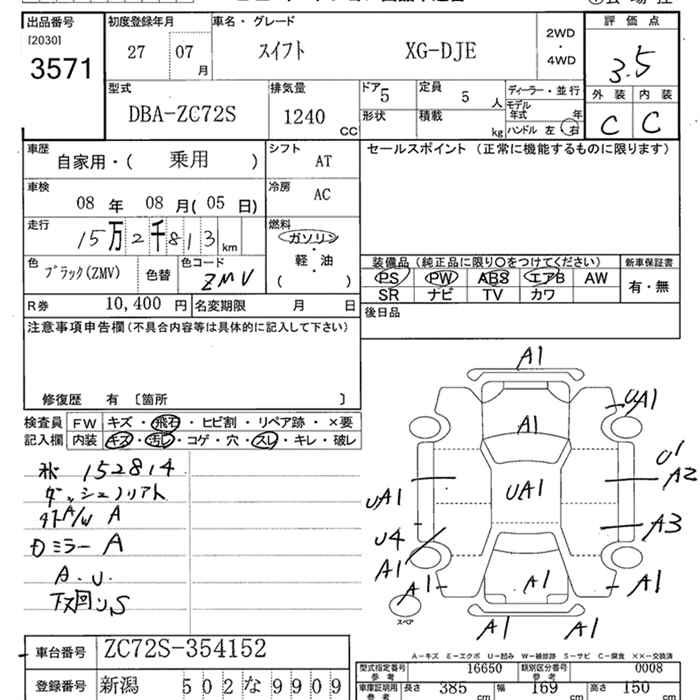 出品番号
[2030]
3571
初度登録年月
27 07
月
車名・グレード
スイフト XG-DJE
2WD
・
4WD
評価点
3.5
外装 内装
C C
型式
DBA-ZC72S
排気量
1240
CC
ドア
5
定員
5
人
形状
積載
kg
ディーラー・並行
モデル
年式 年
ハンドル 左・右
車歴
自家用・( 乗用 )
シフト
AT
車検
08 年 08 月(05 日)
冷房
AC
走行
15万2千813
km
燃料
ガソリン
軽・油
( )
色
ブラック(ZMV)
色替
色コード
ZMV
R券 10,400 円
名変期限 月 日
セールスポイント (正常に機能するものに限ります)
装備品(純正品に限り○をつけてください)
PS PW ABS エアB AW
SR ナビ TV カワ
新車保証書
有・無
後日品
注意事項申告欄(不具合内容等は具体的に記入して下さい)
修復歴 有 〔箇所 〕
検査員
記入欄
FW キズ・飛石・ヒビ割・リペア跡・×要
内装 キズ・汚レ・コゲ・穴・スレ・キレ・破レ
152814
A
ミラー A
A.U.
A1
UA1
A1
U1
A2
UA1
UA1
A3
U4
A1
A1
A1
A1
A1
A1
スペア
A－キズ E－エクボ U－凹み W－補修跡 S－サビ C－腐食 ××－交換済
車台番号 ZC72S-354152
登録番号 新潟 502な9909
型式指定番号
参考
16650
類別区分番号
参考
0008
車庫証明用
参考
長さ 385 cm
幅 169 cm
高さ 150 cm